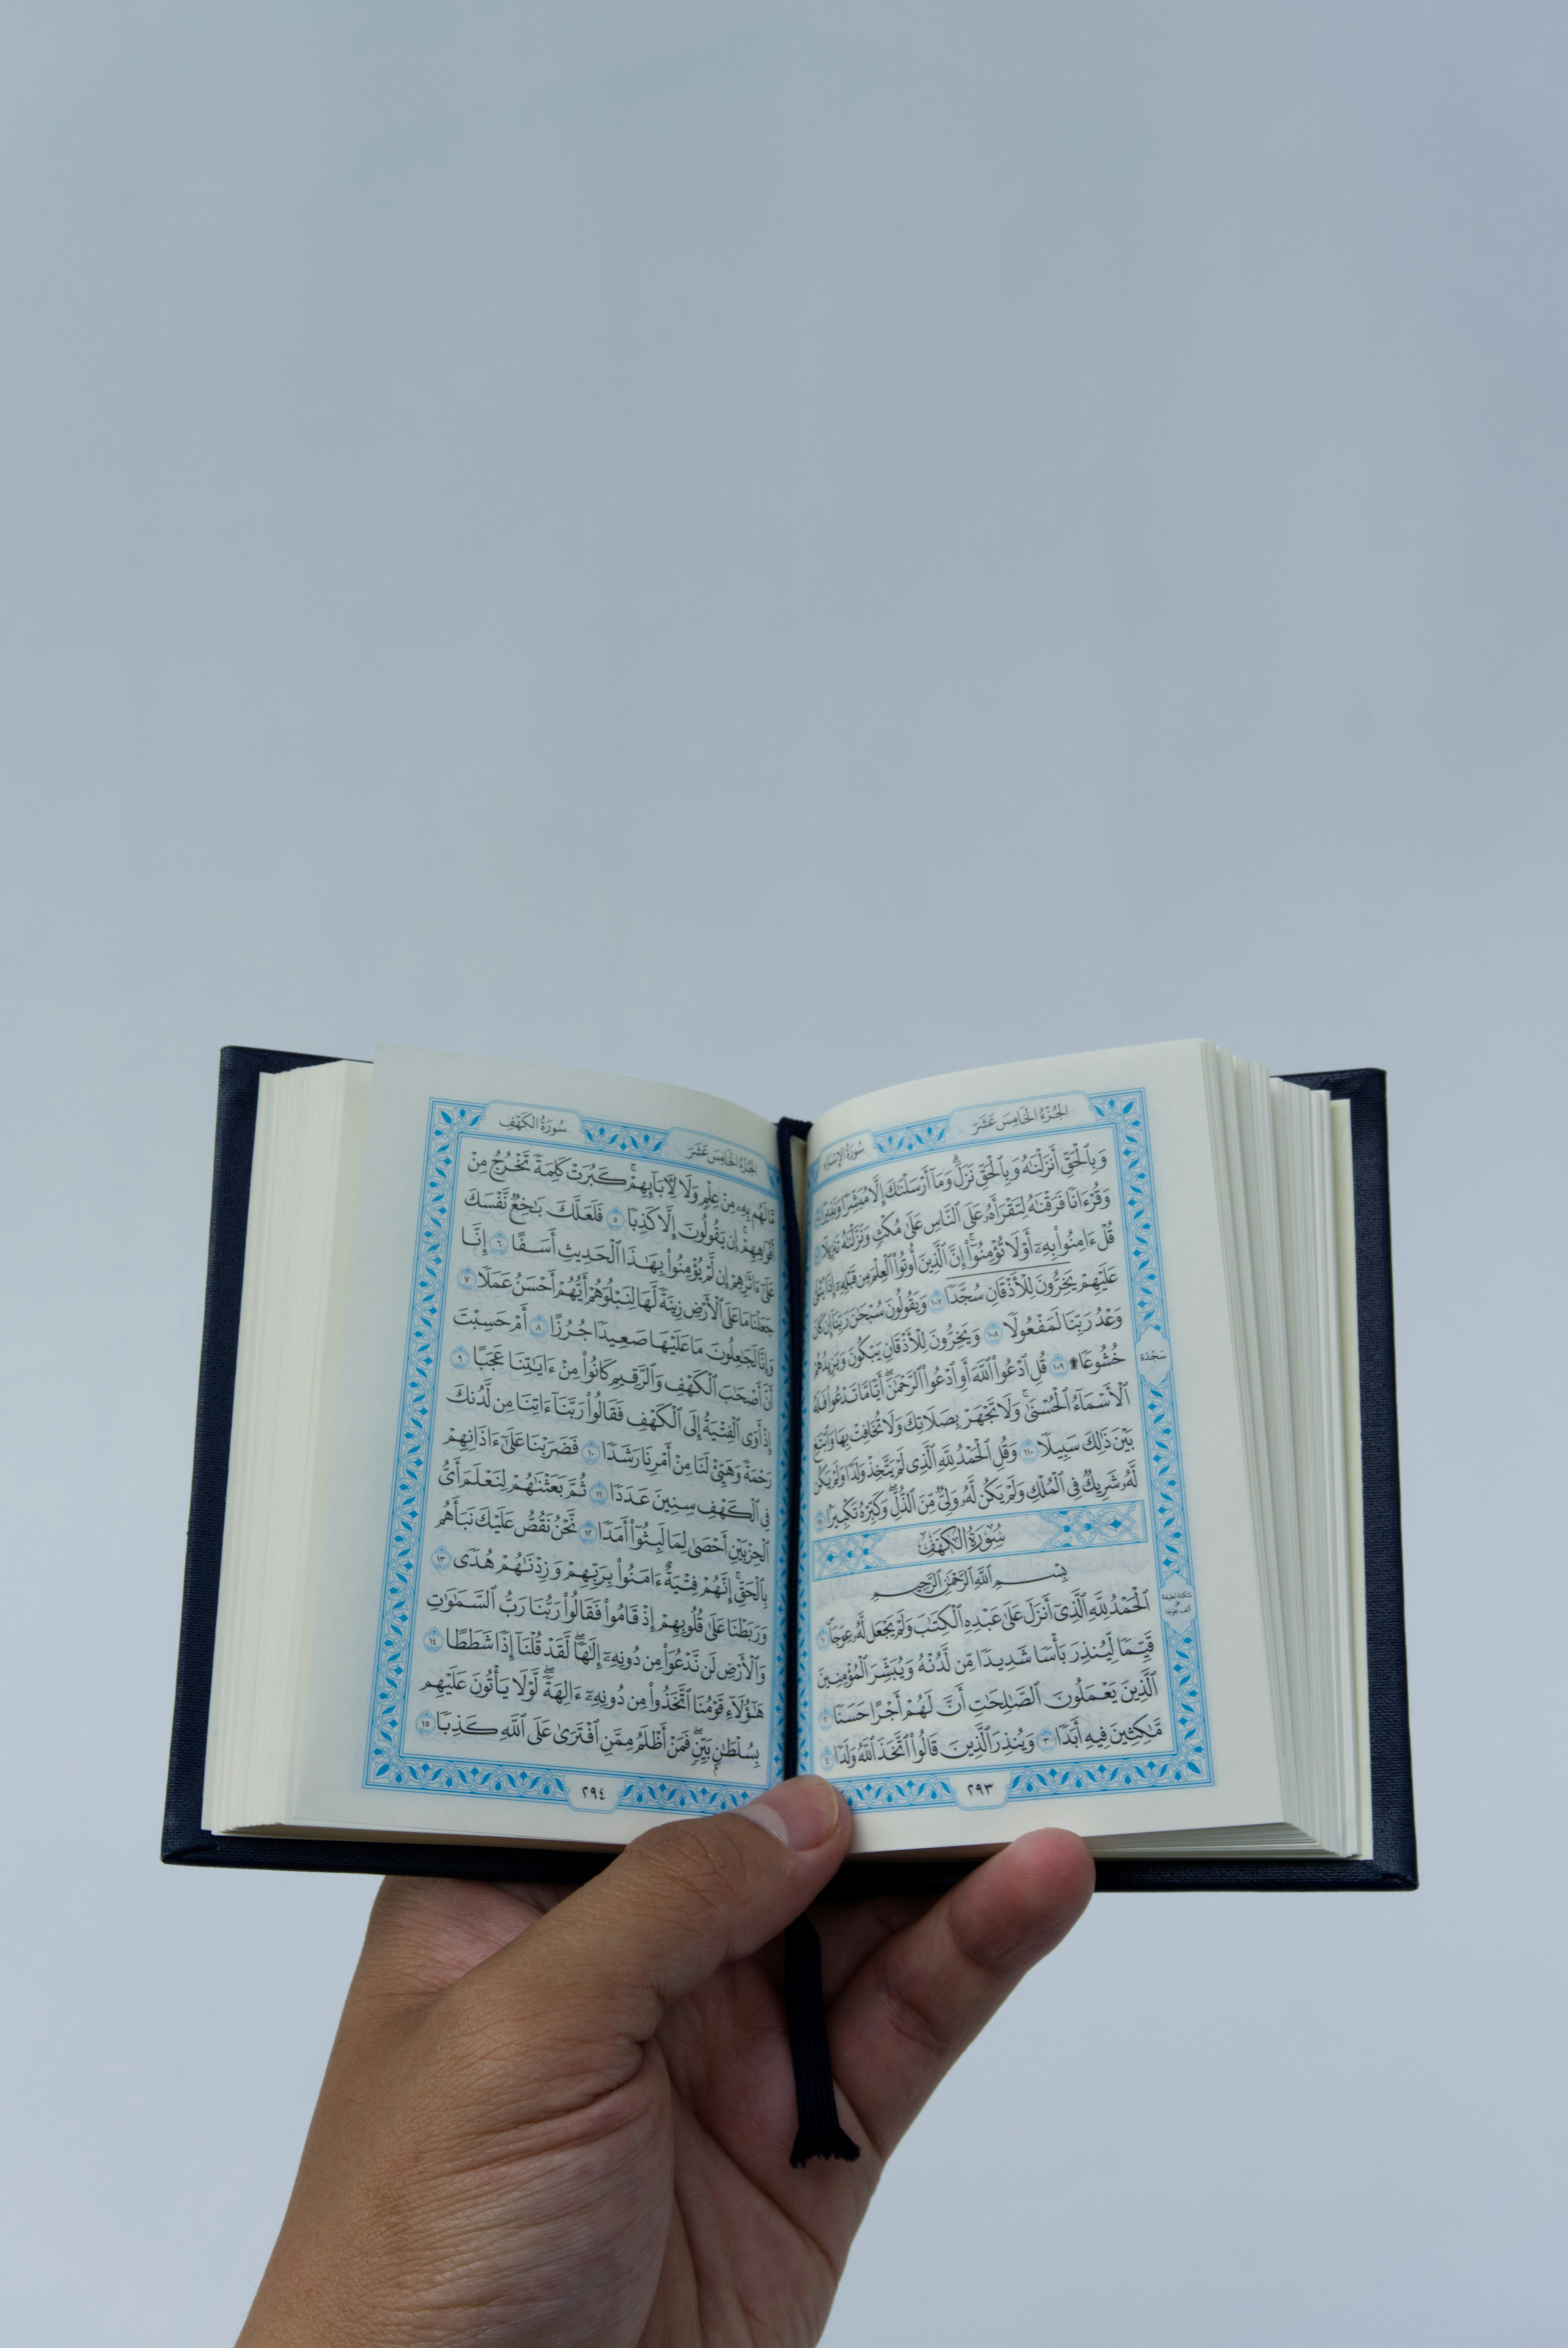 سُورَةُ الإِسۡرَاءِ الجُزۡءُ الخَامِسَ عَشَرَ
وَبِٱلۡحَقِّ أَنزَلۡنَٰهُ وَبِٱلۡحَقِّ نَزَلَۗ وَمَآ أَرۡسَلۡنَٰكَ إِلَّا مُبَشِّرٗا وَنَذِيرٗا ١٠٥
وَقُرۡءَانٗا فَرَقۡنَٰهُ لِتَقۡرَأَهُۥ عَلَى ٱلنَّاسِ عَلَىٰ مُكۡثٖ وَنَزَّلۡنَٰهُ تَنزِيلٗا ١٠٦
قُلۡ ءَامِنُواْ بِهِۦٓ أَوۡ لَا تُؤۡمِنُوٓاْۚ إِنَّ ٱلَّذِينَ أُوتُواْ ٱلۡعِلۡمَ مِن قَبۡلِهِۦٓ إِذَا يُتۡلَىٰ
عَلَيۡهِمۡ يَخِرُّونَۤ لِلۡأَذۡقَانِۤ سُجَّدٗاۤ ١٠٧ وَيَقُولُونَ سُبۡحَٰنَ رَبِّنَآ إِن كَانَ
وَعۡدُ رَبِّنَا لَمَفۡعُولٗا ١٠٨ وَيَخِرُّونَ لِلۡأَذۡقَانِ يَبۡكُونَ وَيَزِيدُهُمۡ
خُشُوعٗا۩ ١٠٩ قُلِ ٱدۡعُواْ ٱللَّهَ أَوِ ٱدۡعُواْ ٱلرَّحۡمَٰنَۖ أَيّٗا مَّا تَدۡعُواْ فَلَهُ
سَجۡدَة
ٱلۡأَسۡمَآءُ ٱلۡحُسۡنَىٰۚ وَلَا تَجۡهَرۡ بِصَلَاتِكَ وَلَا تُخَافِتۡ بِهَا وَٱبۡتَغِ
بَيۡنَ ذَٰلِكَ سَبِيلٗا ١١٠ وَقُلِ ٱلۡحَمۡدُ لِلَّهِ ٱلَّذِي لَمۡ يَتَّخِذۡ وَلَدٗا وَلَمۡ يَكُن
لَّهُۥ شَرِيكٞ فِي ٱلۡمُلۡكِ وَلَمۡ يَكُن لَّهُۥ وَلِيّٞ مِّنَ ٱلذُّلِّۖ وَكَبِّرۡهُ تَكۡبِيرَۢا ١١١
سُورَةُ الكَهۡفِ
بِسۡمِ ٱللَّهِ ٱلرَّحۡمَٰنِ ٱلرَّحِيمِ
ٱلۡحَمۡدُ لِلَّهِ ٱلَّذِيٓ أَنزَلَ عَلَىٰ عَبۡدِهِ ٱلۡكِتَٰبَ وَلَمۡ يَجۡعَل لَّهُۥ عِوَجَاۜ ١
قَيِّمٗا لِّيُنذِرَ بَأۡسٗا شَدِيدٗا مِّن لَّدُنۡهُ وَيُبَشِّرَ ٱلۡمُؤۡمِنِينَ
ٱلَّذِينَ يَعۡمَلُونَ ٱلصَّٰلِحَٰتِ أَنَّ لَهُمۡ أَجۡرًا حَسَنٗا ٢
مَّٰكِثِينَ فِيهِ أَبَدٗا ٣ وَيُنذِرَ ٱلَّذِينَ قَالُواْ ٱتَّخَذَ ٱللَّهُ وَلَدٗا ٤
٢٩٣
الجُزۡءُ الخَامِسَ عَشَرَ سُورَةُ الكَهۡفِ
مَّا لَهُم بِهِۦ مِنۡ عِلۡمٖ وَلَا لِأٓبَآئِهِمۡۚ كَبُرَتۡ كَلِمَةٗ تَخۡرُجُ مِنۡ
أَفۡوَٰهِهِمۡۚ إِن يَقُولُونَ إِلَّا كَذِبٗا ٥ فَلَعَلَّكَ بَٰخِعٞ نَّفۡسَكَ
عَلَىٰٓ ءَاثَٰرِهِمۡ إِن لَّمۡ يُؤۡمِنُواْ بِهَٰذَا ٱلۡحَدِيثِ أَسَفًا ٦ إِنَّا
جَعَلۡنَا مَا عَلَى ٱلۡأَرۡضِ زِينَةٗ لَّهَا لِنَبۡلُوَهُمۡ أَيُّهُمۡ أَحۡسَنُ عَمَلٗا ٧
وَإِنَّا لَجَٰعِلُونَ مَا عَلَيۡهَا صَعِيدٗا جُرُزًا ٨ أَمۡ حَسِبۡتَ
أَنَّ أَصۡحَٰبَ ٱلۡكَهۡفِ وَٱلرَّقِيمِ كَانُواْ مِنۡ ءَايَٰتِنَا عَجَبًا ٩
إِذۡ أَوَى ٱلۡفِتۡيَةُ إِلَى ٱلۡكَهۡفِ فَقَالُواْ رَبَّنَآ ءَاتِنَا مِن لَّدُنكَ
رَحۡمَةٗ وَهَيِّئۡ لَنَا مِنۡ أَمۡرِنَا رَشَدٗا ١٠ فَضَرَبۡنَا عَلَىٰٓ ءَاذَانِهِمۡ
فِي ٱلۡكَهۡفِ سِنِينَ عَدَدٗا ١١ ثُمَّ بَعَثۡنَٰهُمۡ لِنَعۡلَمَ أَيُّ
ٱلۡحِزۡبَيۡنِ أَحۡصَىٰ لِمَا لَبِثُوٓاْ أَمَدٗا ١٢ نَّحۡنُ نَقُصُّ عَلَيۡكَ نَبَأَهُم
بِٱلۡحَقِّۚ إِنَّهُمۡ فِتۡيَةٌ ءَامَنُواْ بِرَبِّهِمۡ وَزِدۡنَٰهُمۡ هُدٗى ١٣
وَرَبَطۡنَا عَلَىٰ قُلُوبِهِمۡ إِذۡ قَامُواْ فَقَالُواْ رَبُّنَا رَبُّ ٱلسَّمَٰوَٰتِ
وَٱلۡأَرۡضِ لَن نَّدۡعُوَاْ مِن دُونِهِۦٓ إِلَٰهٗاۖ لَّقَدۡ قُلۡنَآ إِذٗا شَطَطًا ١٤
هَٰٓؤُلَآءِ قَوۡمُنَا ٱتَّخَذُواْ مِن دُونِهِۦٓ ءَالِهَةٗۖ لَّوۡلَا يَأۡتُونَ عَلَيۡهِم
بِسُلۡطَٰنِۭ بَيِّنٖۖ فَمَنۡ أَظۡلَمُ مِمَّنِ ٱفۡتَرَىٰ عَلَى ٱللَّهِ كَذِبٗا ١٥
٢٩٤